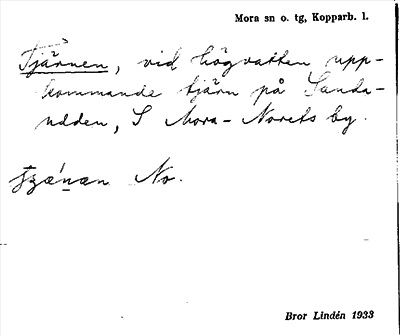 Mora sn o. tg, Kopparb. l.
Tjärnen, vid högvatten upp-
kommande tjärn på Sanda-
udden, S Mora-Norets by.
No.
Bror Lindén 1933